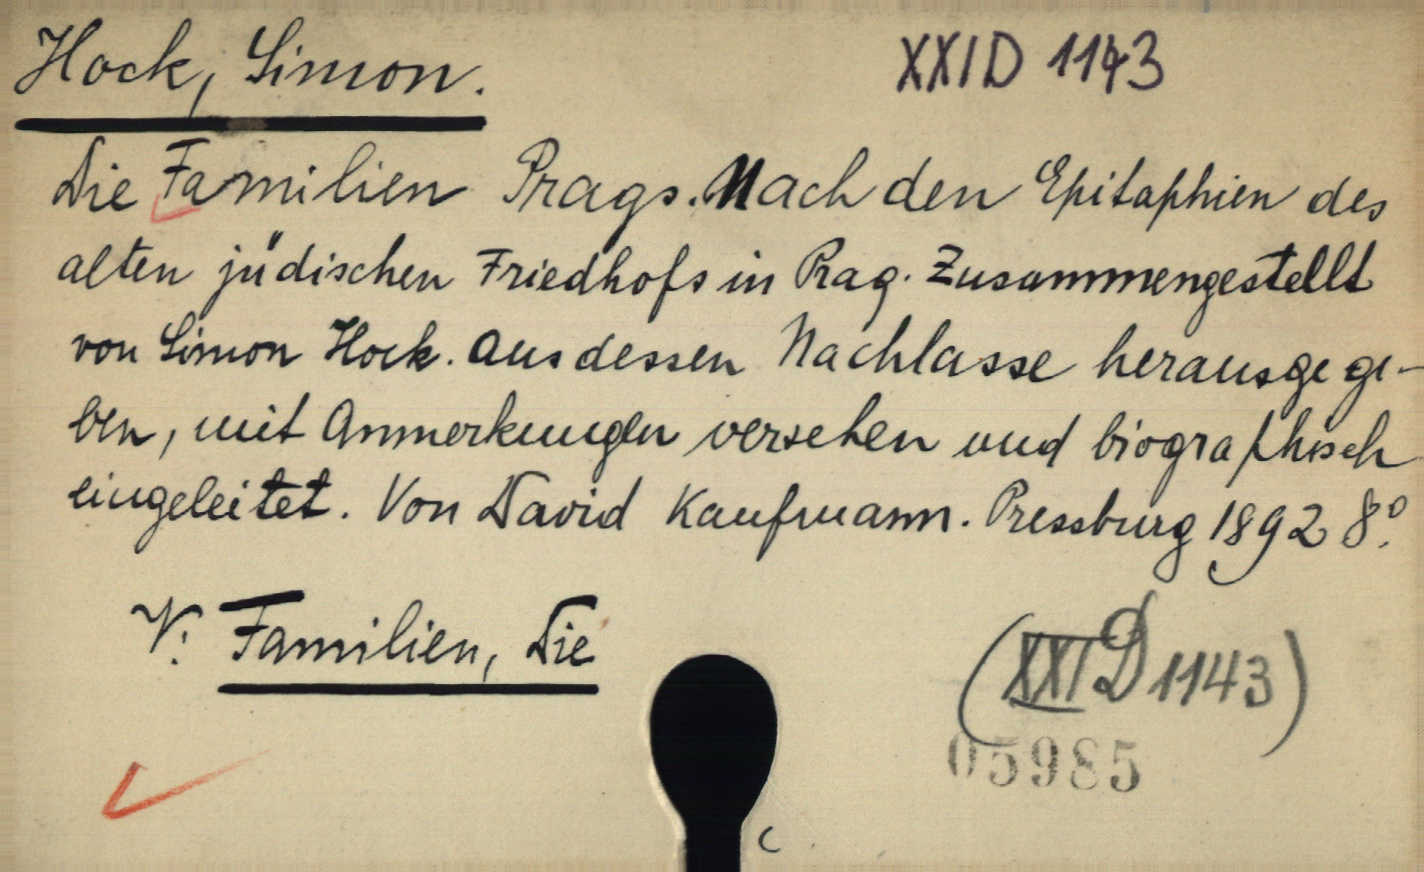 Hock, Simon.
XXI D 1143
Die Familien Prags. Nach den Epitaphien des
alten jüdischen Friedhofs in Prag. Zusammengestellt
von Simon Hock. Aus dessen Nachlasse herausgege-
ben, mit Anmerkungen versehen und biographisch
eingeleitet. Von David Kaufmann. Pressburg 1892 8°.
V: Familien, Die
(XXI D 1143)
05985
c